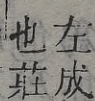 左成
也莊